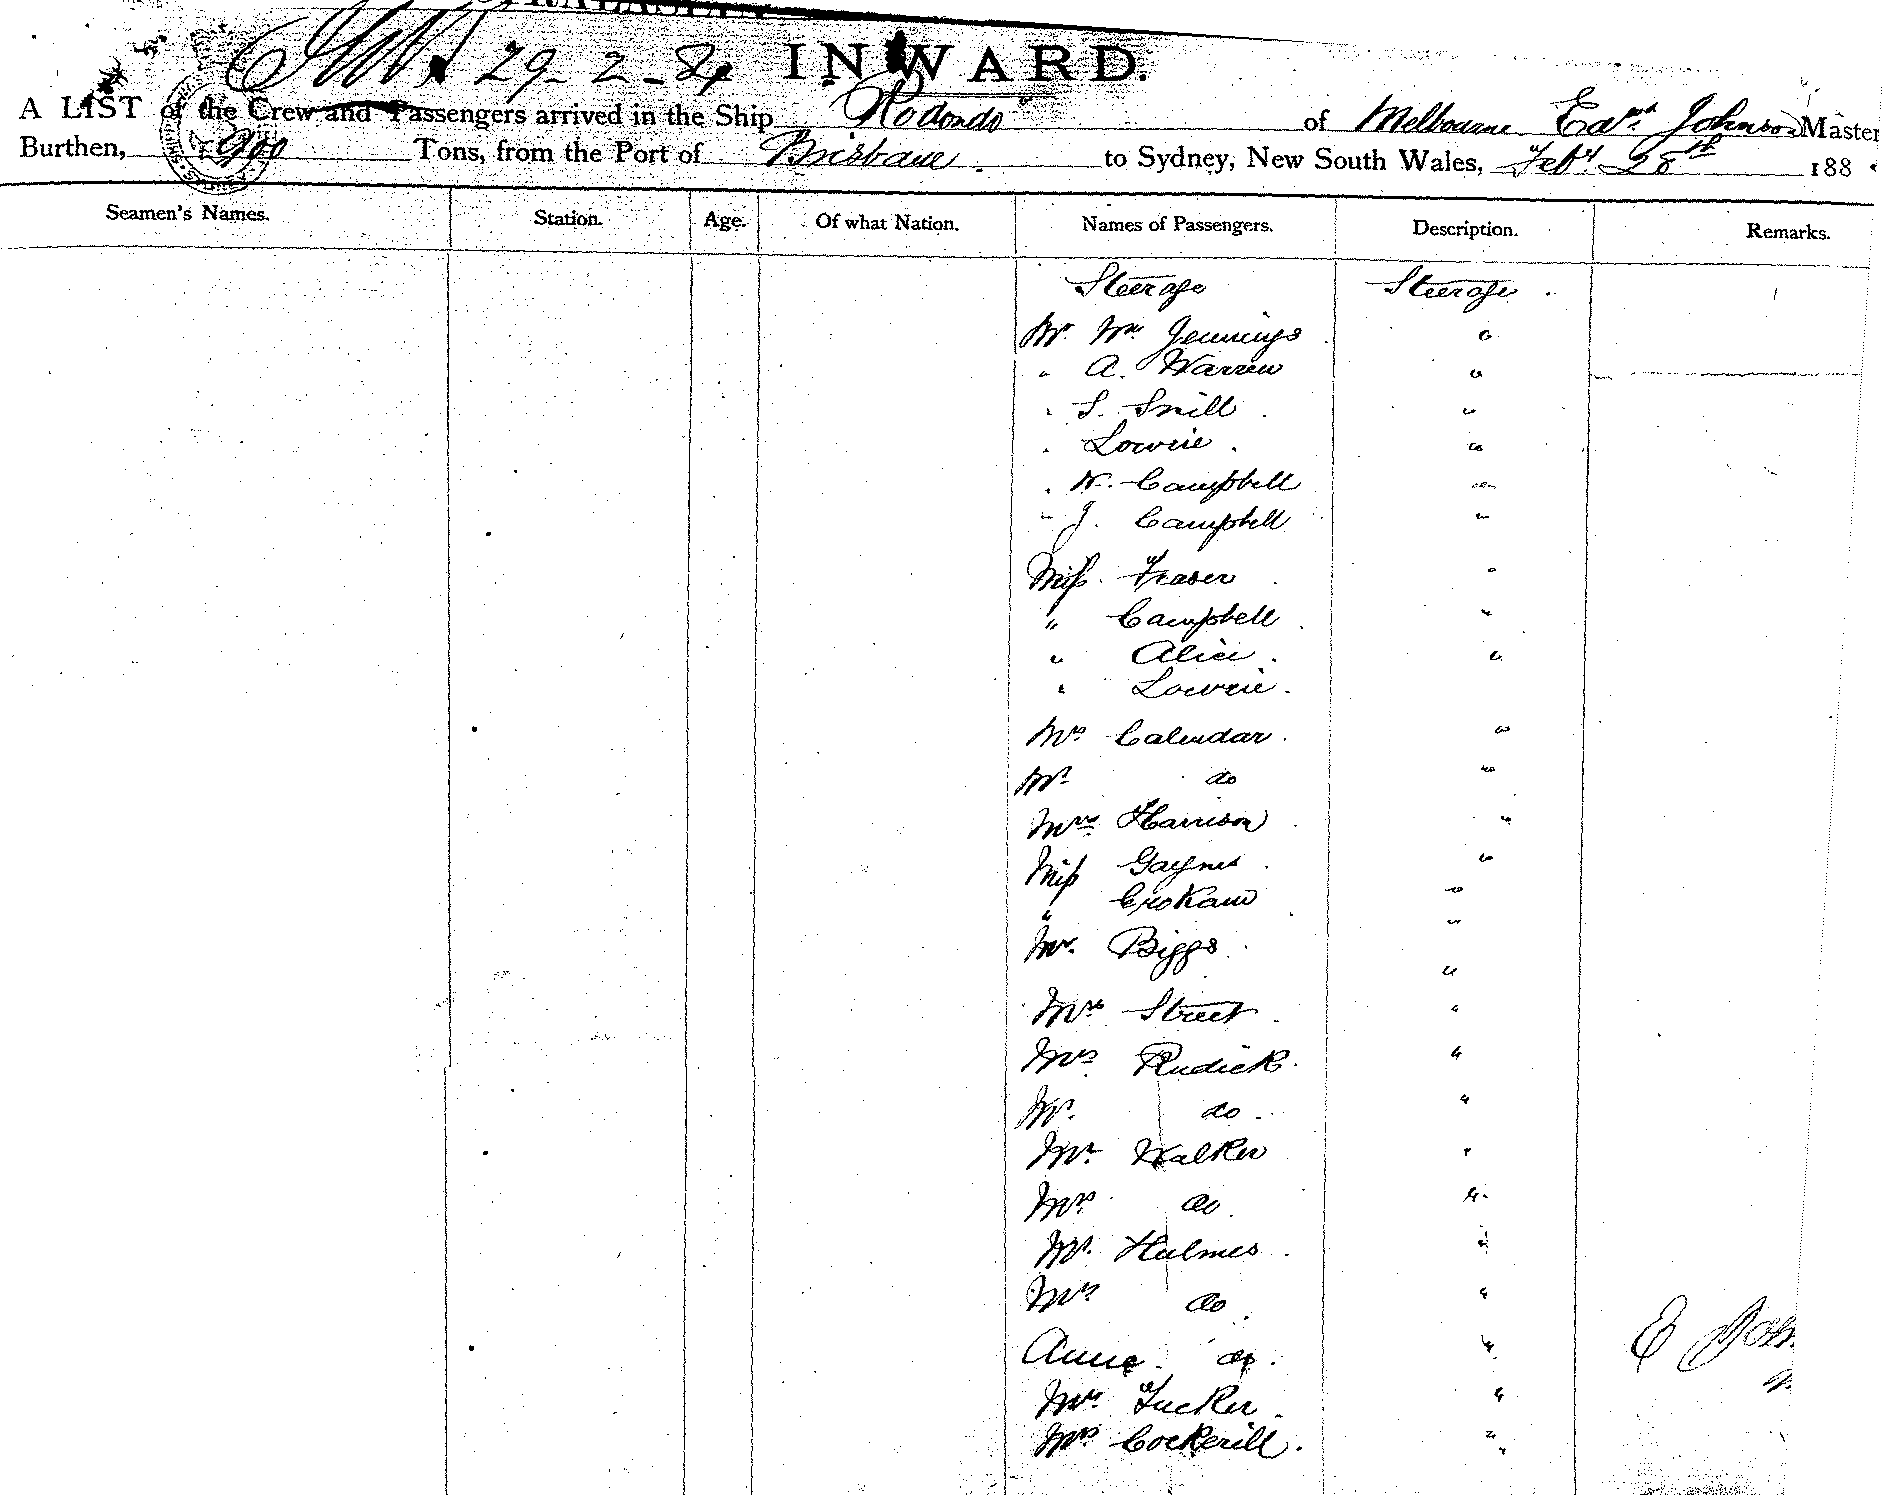 29-2-84 INWARD.
A LIST of the Crew and Passengers arrived in the Ship Rodondo of Melbourne Edwd Johnson Master
Burthen, 900 Tons, from the Port of Brisbane. to Sydney, New South Wales, Feby 28th 188
Seamen's Names. Station. Age. Of what Nation. Names of Passengers. Description. Remarks.
Steerage Steerage.
Mr. Wm Jennings "
" A. Warren "
" S. Snill "
" Lowrie "
" W. Campbell "
" J. Campbell "
Miss Fraser "
" Campbell "
" Alice "
" Lowrie.
Mrs Calendar. "
Mr. do "
Mrs Harrison "
Miss Gaynes "
" Crokam "
Mr. Biggs "
Mrs Street "
Mrs Rudick. "
Mr. do. "
Mr. Walker "
Mrs do "
Mr. Hulmes "
Mrs do "
Annie do. "
Mr. Tucker "
Mrs Cockerill. "